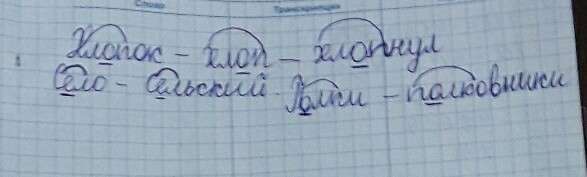 Слово Транскрипция
Хлопок – хлоп – хлопнул
Село – сельский. Полки – полковники